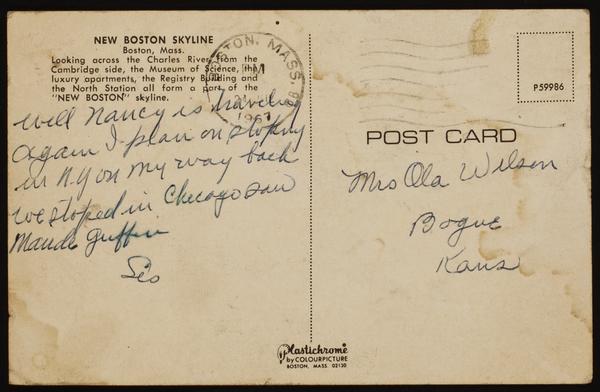 NEW BOSTON SKYLINE
Boston, Mass.
Looking across the Charles River from the
Cambridge side, the Museum of Science, the
luxury apartments, the Registry Building and
the North Station all form a part of the
"NEW BOSTON" skyline.
BOSTON, MASS.
PM
1967
well Nancy is traveling
again I plan on stoping
in N.Y on my way back
we stoped in Chicago saw
Maude Guffin
Sis
P59986
POST CARD
Mrs Ola Wilson
Bogue
Kans
Plastichrome
by COLOURPICTURE
BOSTON, MASS. 02130